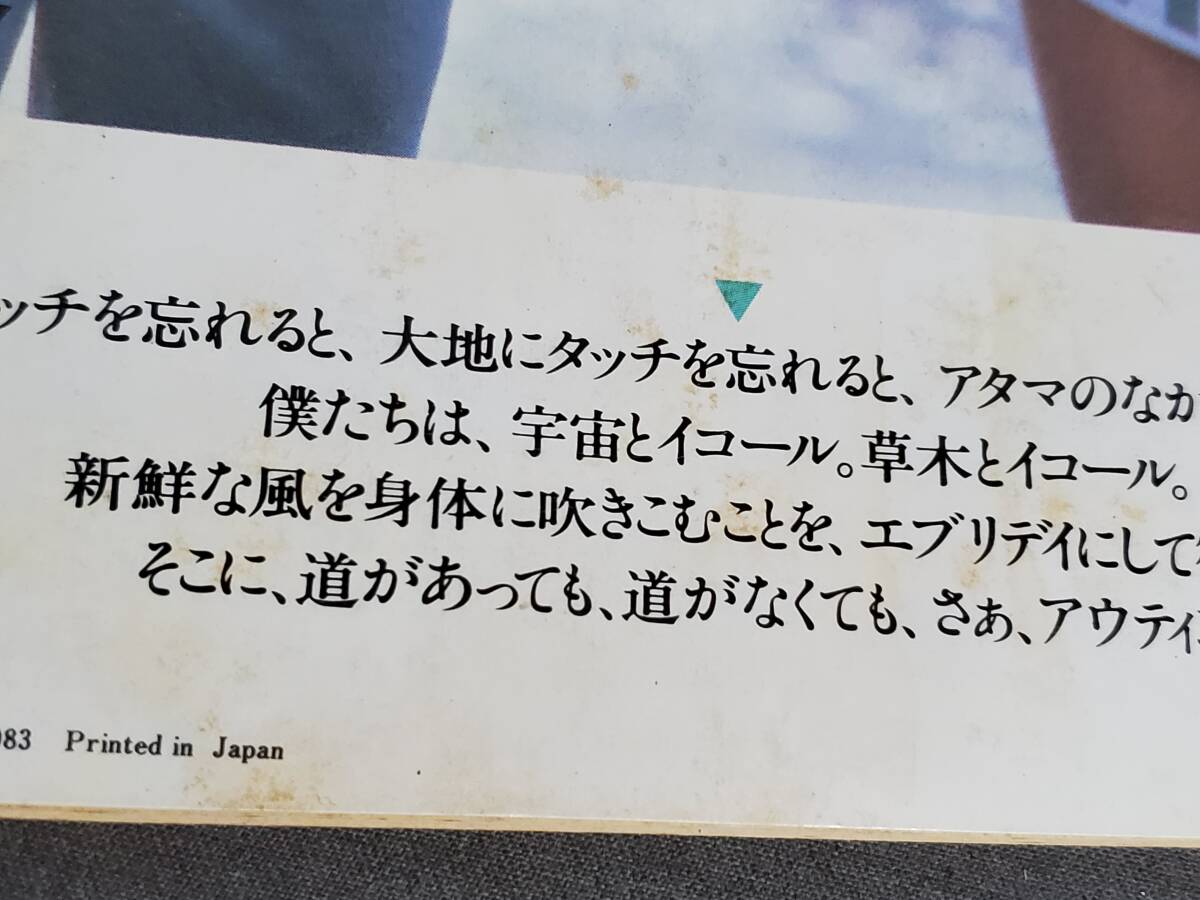 ッチを忘れると、大地にタッチを忘れると、アタマのなか
僕たちは、宇宙とイコール。草木とイコール。
新鮮な風を身体に吹きこむことを、エブリデイにして
そこに、道があっても、道がなくても、さあ、アウティ
983 Printed in Japan